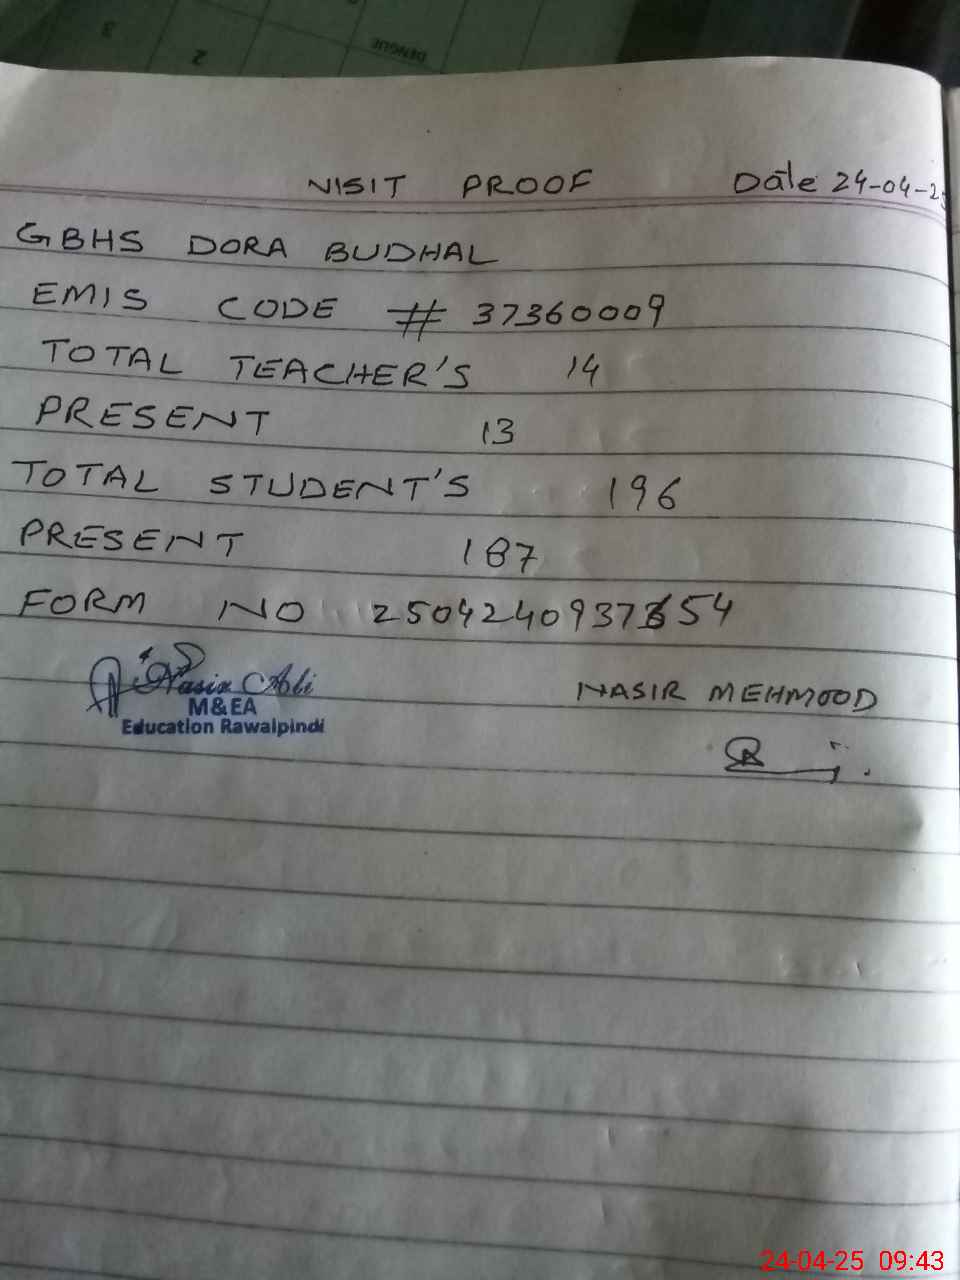 3 2 DENGUE
VISIT PROOF Date 24-04-25
GBHS DORA BUDHAL
EMIS CODE # 37360009
TOTAL TEACHER'S 14
PRESENT 13
TOTAL STUDENT'S 196
PRESENT 187
FORM NO
Nasir Ali
M&EA
Education Rawalpindi
NASIR MEHMOOD
24-04-25 09:43